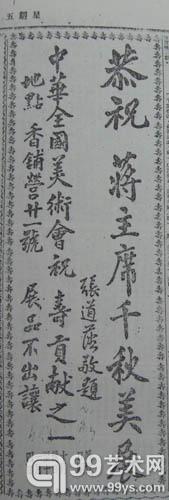 星期五
恭祝 蔣主席千秋美展
張道藩敬題
中華全國美術會祝壽貢獻之一
地點 香舖營廿一號 展品不出讓
99艺术网
www.99ys.com